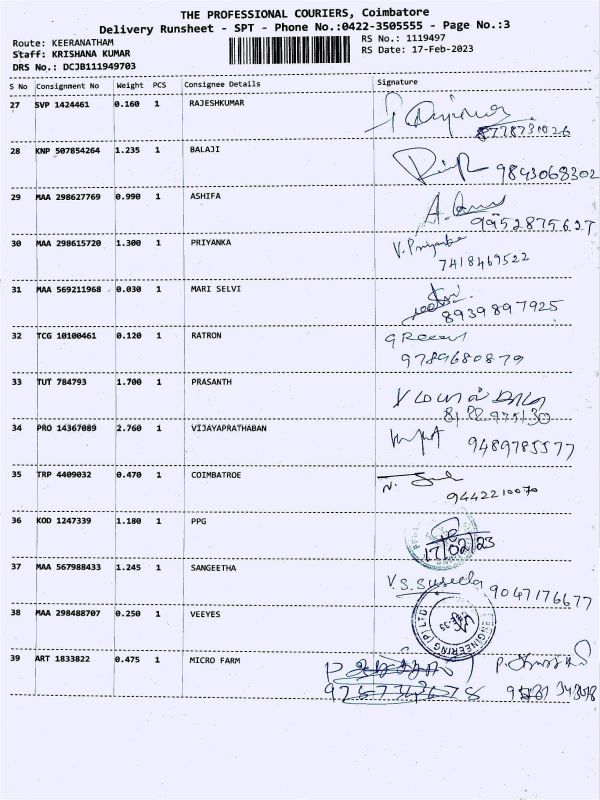 THE PROFESSIONAL COURIERS, Coimbatore
Delivery Runsheet - SPT - Phone No.:0422-3505555 - Page No.:3
Route: KEERANATHAM
RS No.: 1119497
Staff: KRISHANA KUMAR
RS Date: 17-Feb-2023
DRS No.: DCJB111949703
S No Consignment No Weight PCS Consignee Details Signature
27 SVP 1424461 0.160 1 RAJESHKUMAR
8778731026
28 KNP 507854264 1.235 1 BALAJI
9843068302
29 MAA 298627769 0.990 1 ASHIFA
9952875627
30 MAA 298615720 1.300 1 PRIYANKA V. Priyanka
7418469522
31 MAA 569211968 0.030 1 MARI SELVI
8939897925
32 TCG 10100461 0.120 1 RATRON
9789680879
33 TUT 784793 1.700 1 PRASANTH
34 PRO 14367089 2.760 1 VIJAYAPRATHABAN
9489785577
35 TRP 4409032 0.470 1 COIMBATROE
9442210070
36 KOD 1247339 1.180 1 PPG
17/02/23
37 MAA 567988433 1.245 1 SANGEETHA V.S. Suseela 9047176677
38 MAA 298488707 0.250 1 VEEYES
ENGINEERING (P) LTD
39 ART 1833822 0.475 1 MICRO FARM